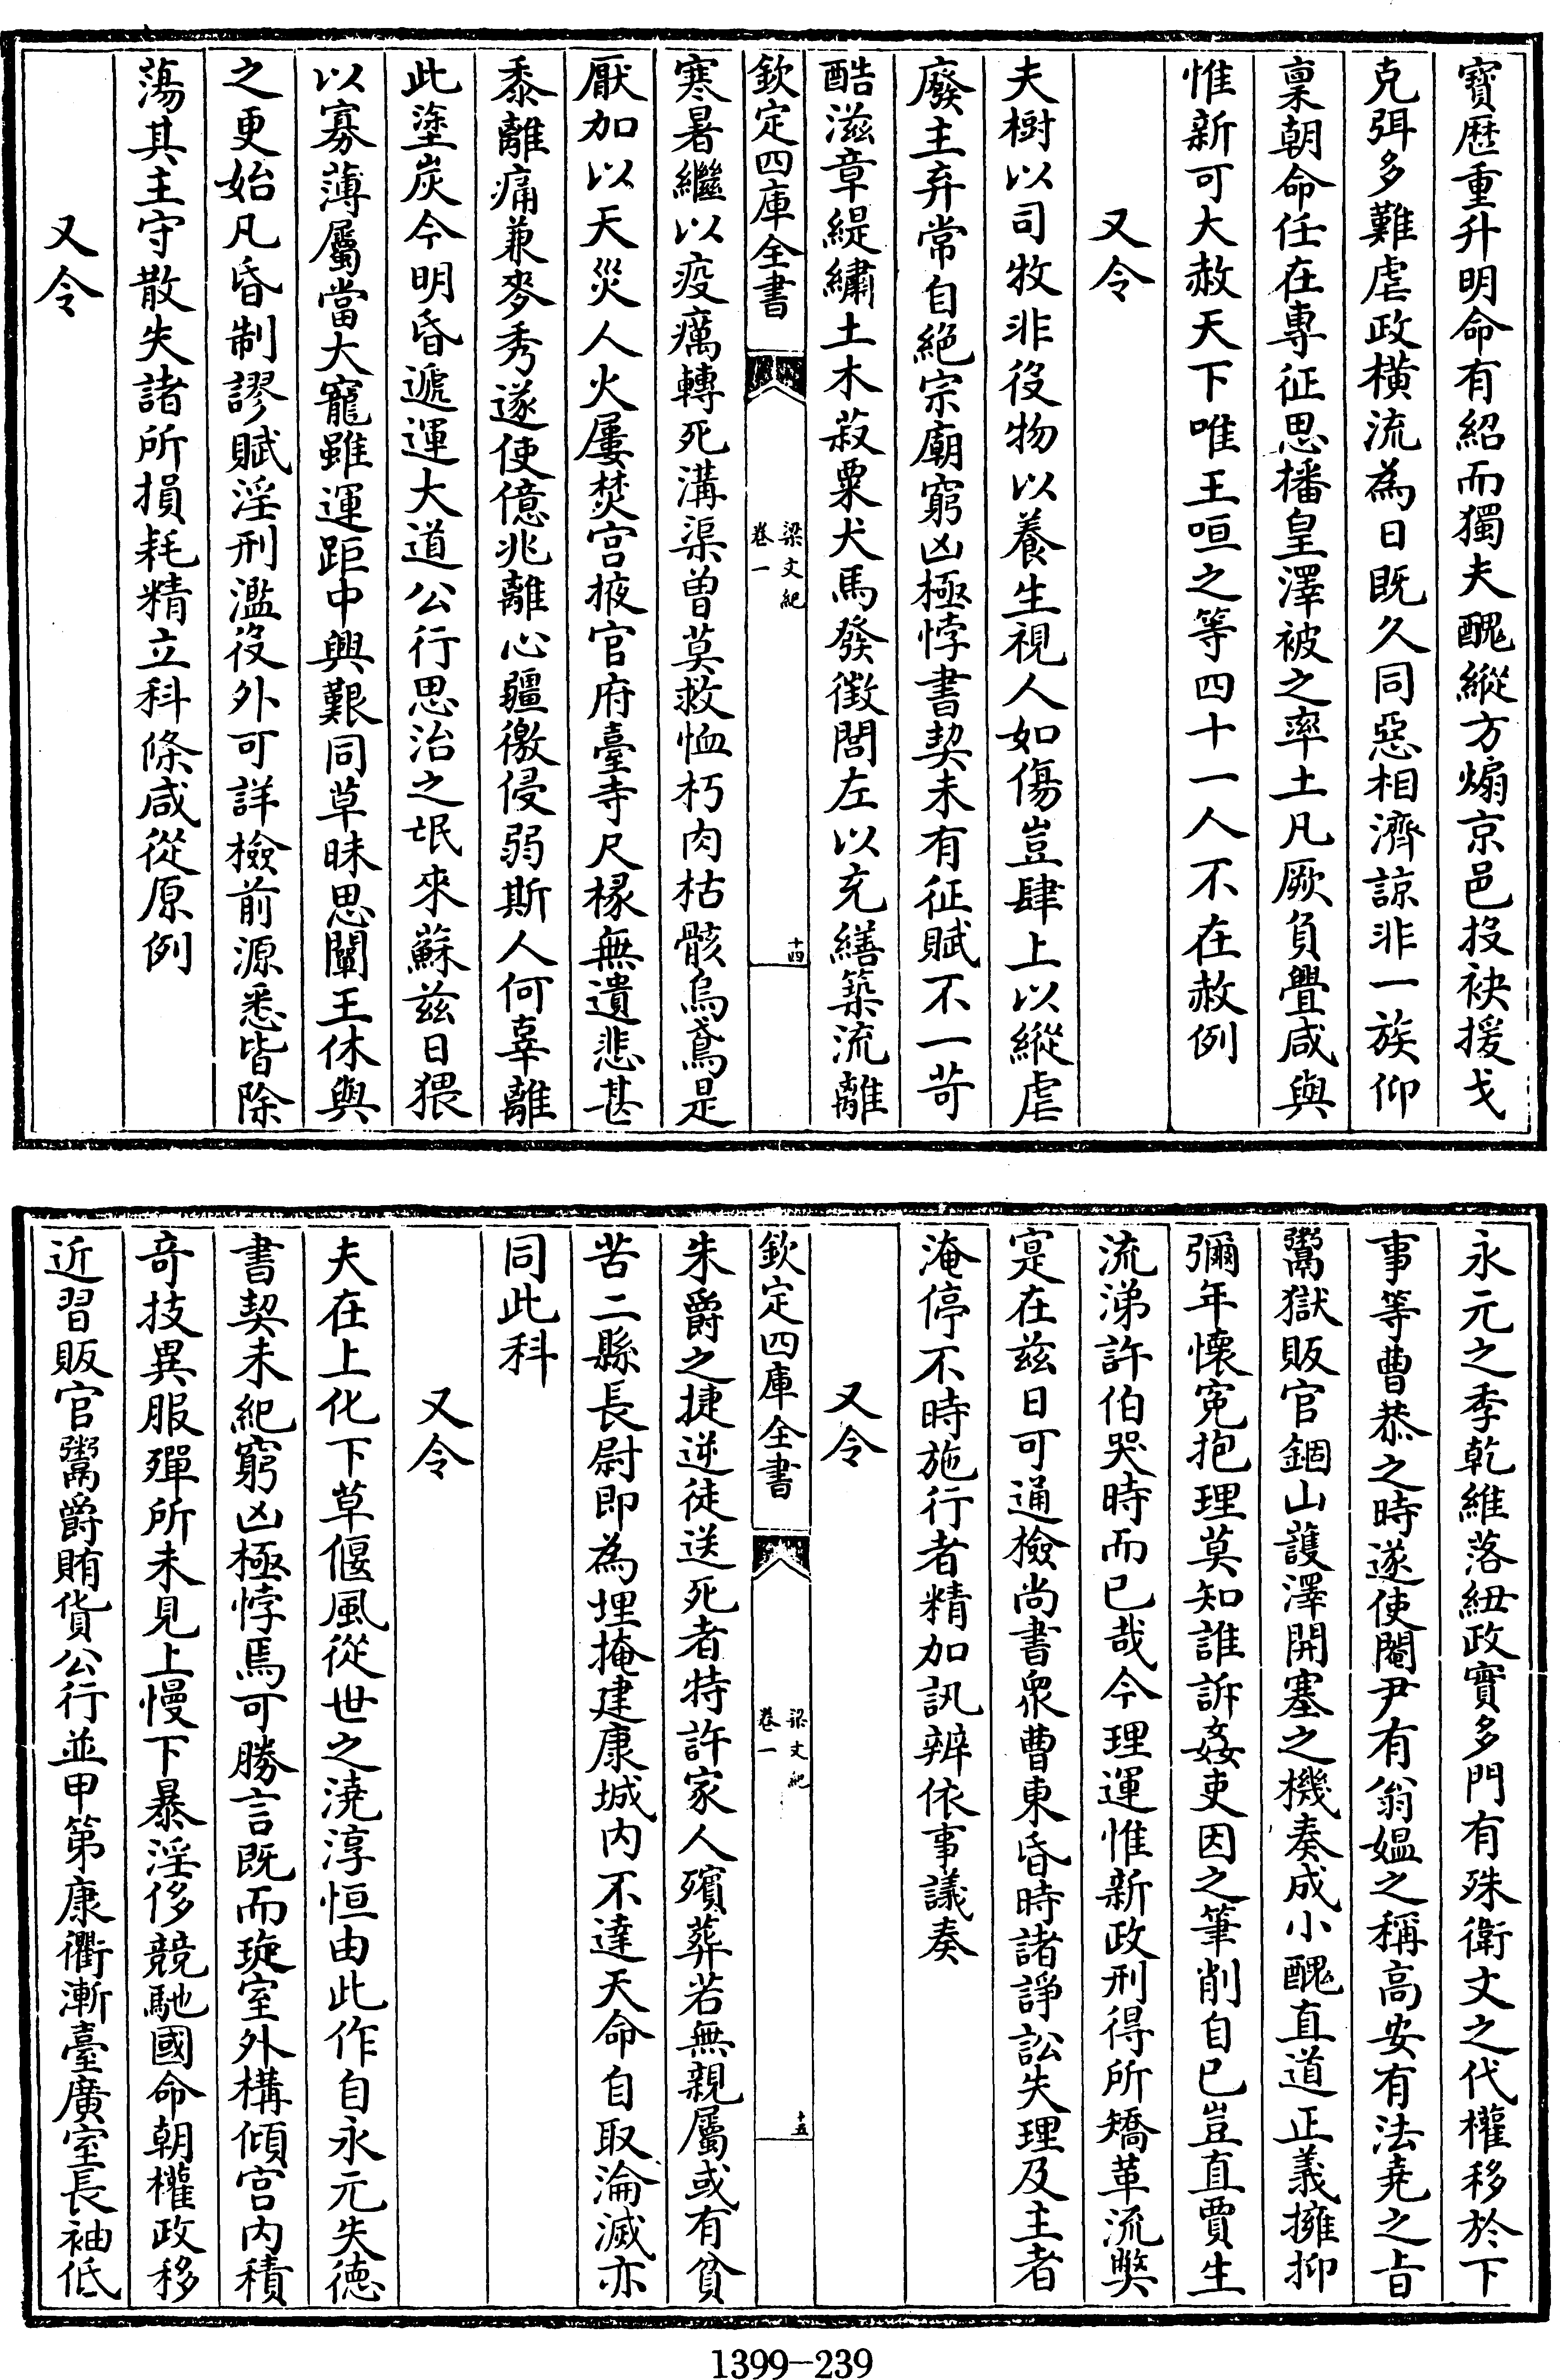 寶歴重升明命有紹而獨夫醜縱方煽京邑投袂援戈
克弭多難虐政橫流為日既久同惡相濟諒非一族仰
稟朝命任在專征思播皇澤被之率土凡厥負釁咸與
惟新可大赦天下唯王咺之等四十一人不在赦例
又令
夫樹以司牧非役物以養生視人如傷豈肆上以縱虐
廢主弃常自絶宗廟窮凶極悖書契未有征賦不一苛
酷滋章緹繡土木菽粟犬馬發徴閭左以充繕築流離
欽定四庫全書
梁文紀
卷一
十四
寒暑繼以疫癘轉死溝渠曽莫救恤朽肉枯骸烏鳶是
厭加以天災人火屢焚宫掖官府臺寺尺椽無遺悲甚
黍離痛兼麥秀遂使億兆離心疆徼侵弱斯人何辜離
此塗炭今明昏遞運大道公行思治之氓來蘇兹日猥
以寡薄屬當大寵雖運距中興艱同草昧思闡王休與
之更始凡昏制謬賦淫刑濫役外可詳檢前源悉皆除
蕩其主守散失諸所損耗精立科條咸從原例
又令
永元之季乾維落紐政實多門有殊衛文之代權移於下
事等曹恭之時遂使閹尹有翁媪之稱高安有法尭之旨
鬻獄販官錮山護澤開塞之機奏成小醜直道正義擁抑
彌年懷寃抱理莫知誰訴姦吏因之筆削自已豈直賈生
流涕許伯哭時而已哉今理運惟新政刑得所矯革流獘
寔在兹日可通檢尚書衆曹東昏時諸諍訟失理及主者
淹停不時施行者精加訊辨依事議奏
又令
欽定四庫全書
梁文紀
卷一
十五
朱爵之捷逆徒送死者特許家人殯葬若無親屬或有貧
苦二縣長尉即為埋掩建康城内不達天命自取淪滅亦
同此科
又令
夫在上化下草偃風從世之澆淳恒由此作自永元失徳
書契未紀窮凶極悖焉可勝言既而琁室外構傾宫内積
奇技異服殫所未見上慢下暴淫侈競馳國命朝權政移
近習販官鬻爵賄貨公行並甲第康衢漸臺廣室長袖低
1399-239